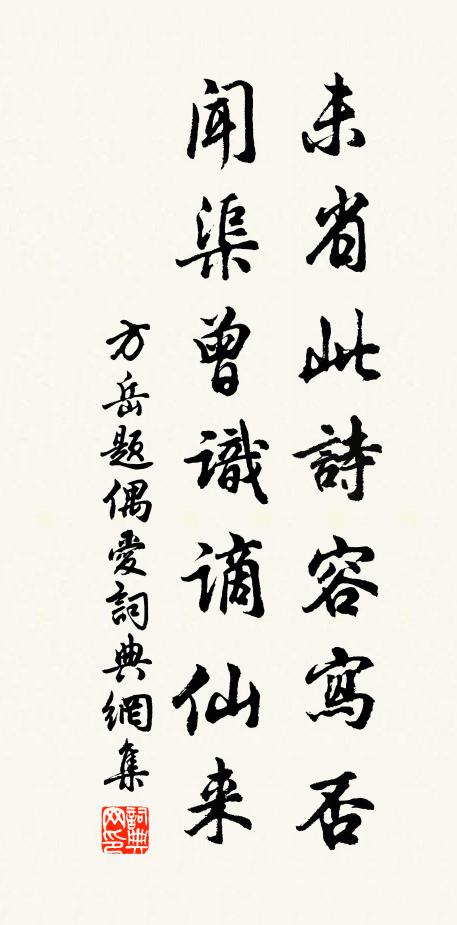 未省此詩容寫否
闻渠曾識谪仙来
方岳題偶爱詞典網集
詞典网印